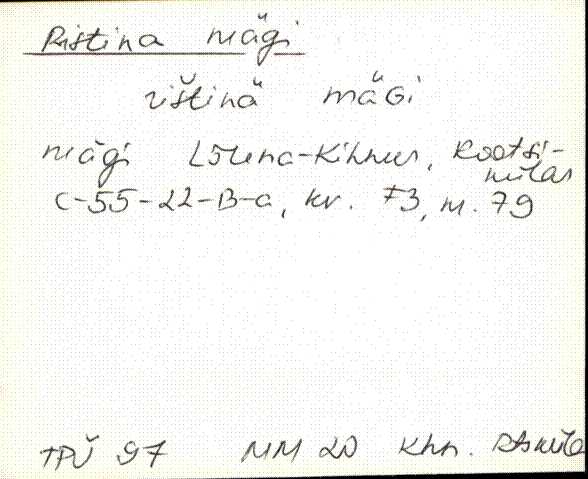 Ristina mägi
rištinä mäGi
mägi Lõuna-Kihnus, Rootsi-
külas
C-55-22-B-a, kv. 73, m. 79
TPÜ 97 MM 20 Khn. RtskülA